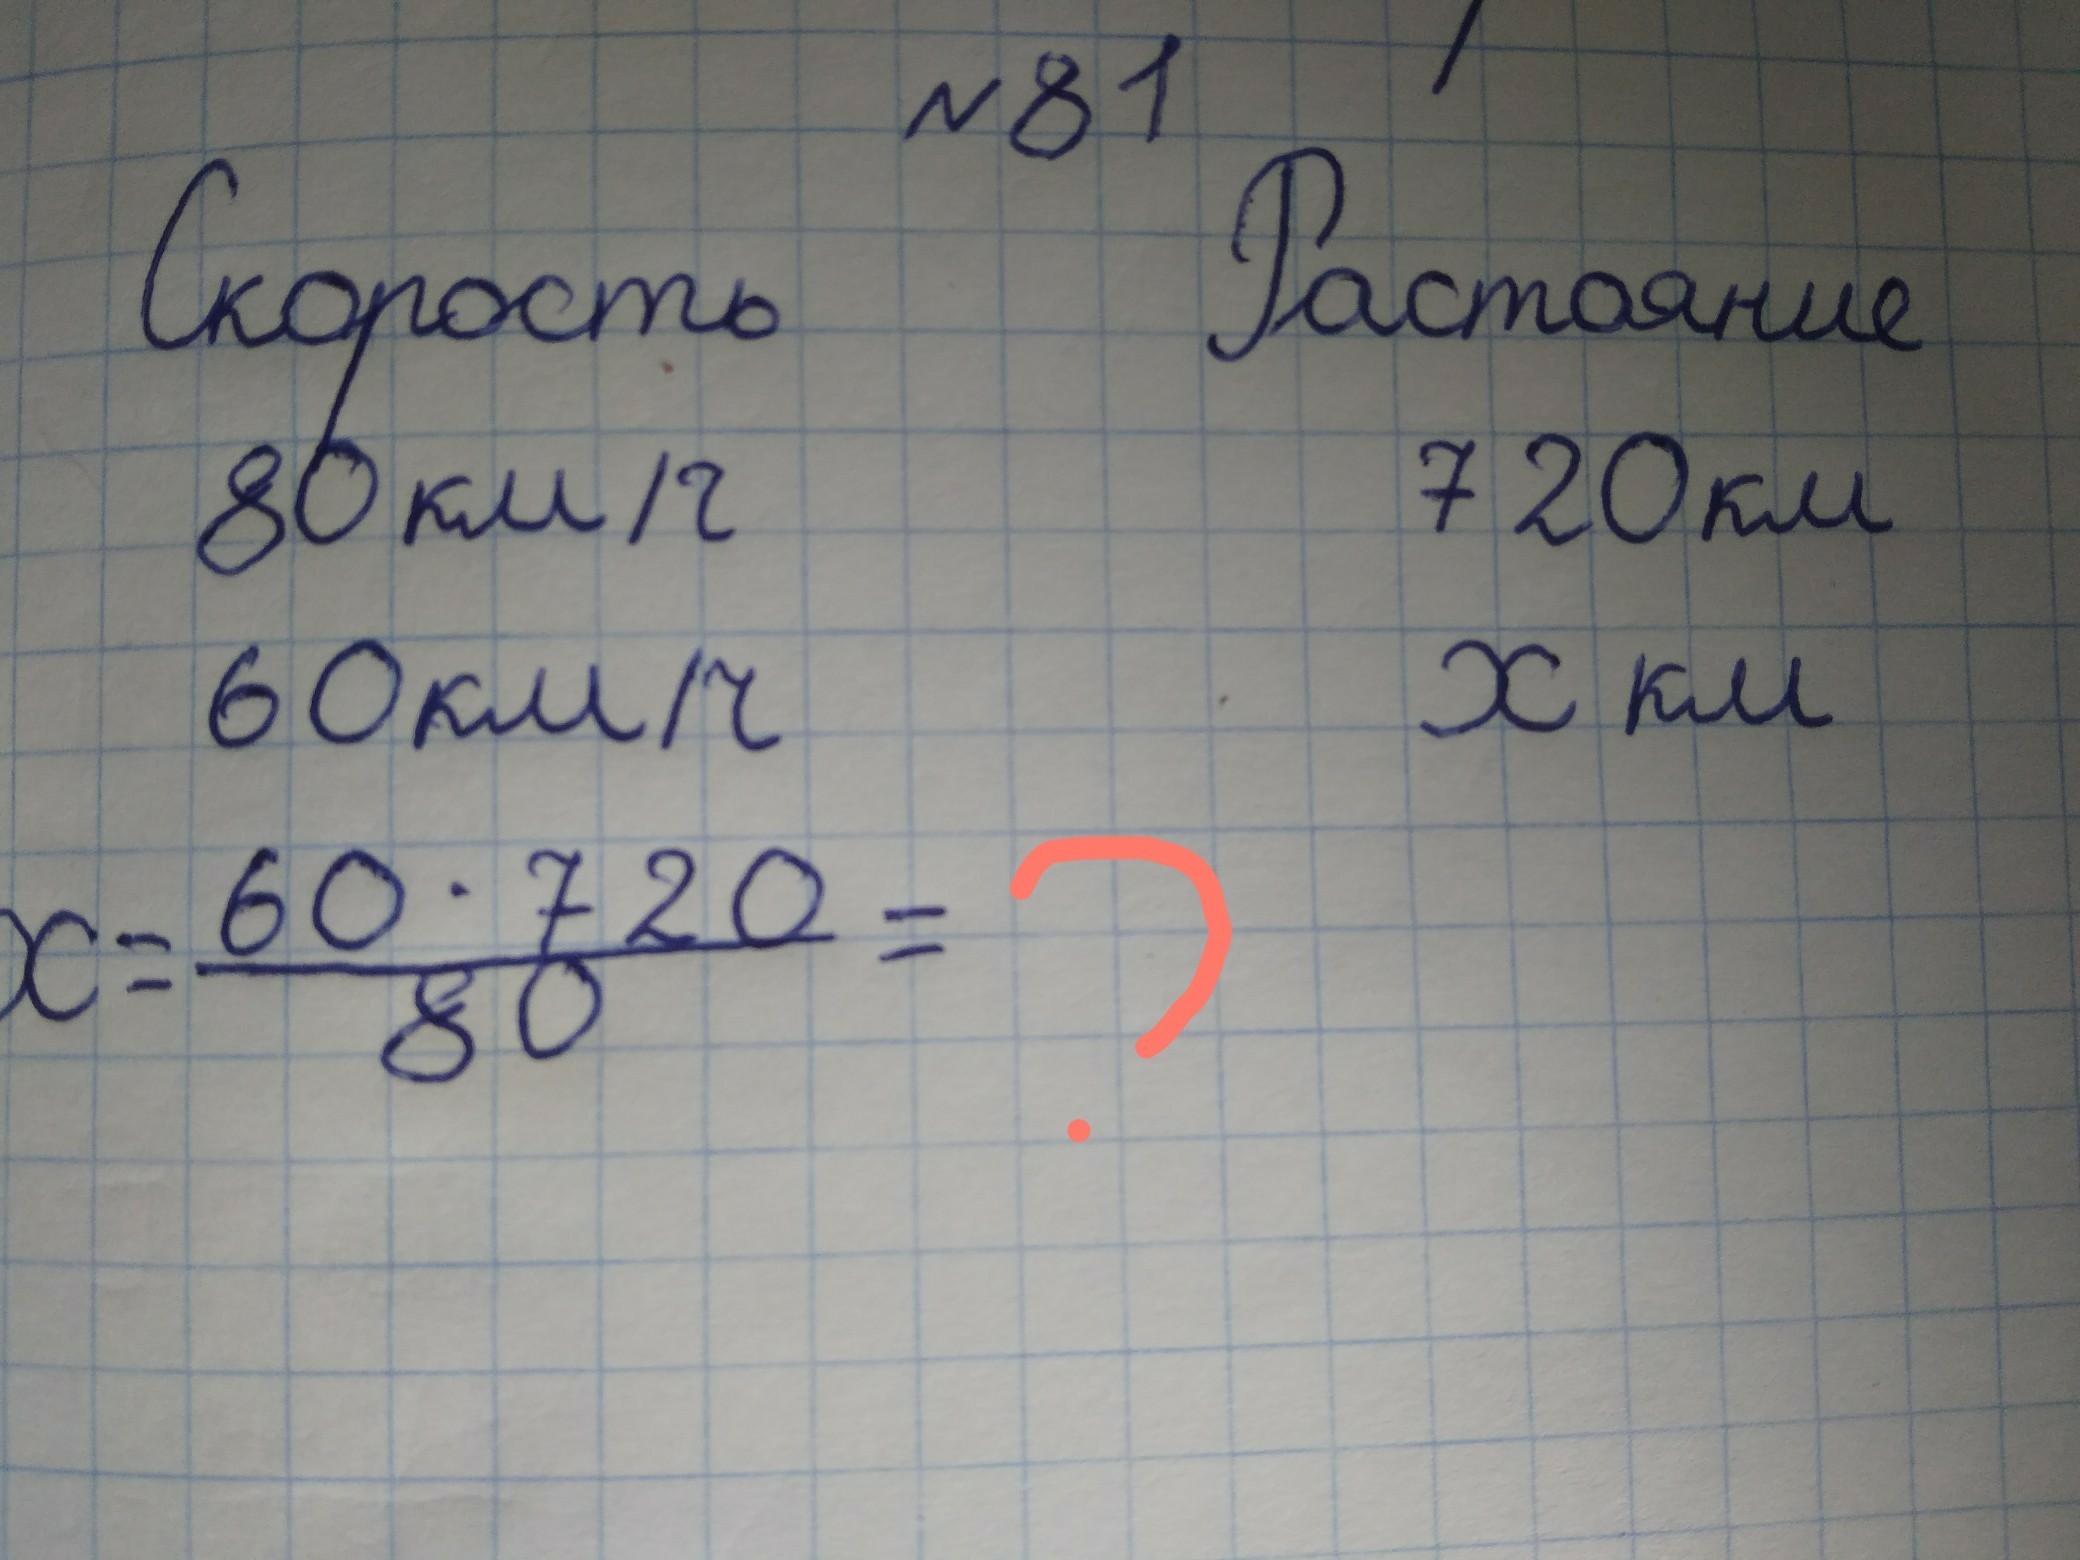 №81
Скорость Растояние
80км/ч 720км
60км/ч х км
х=60·720/80=?